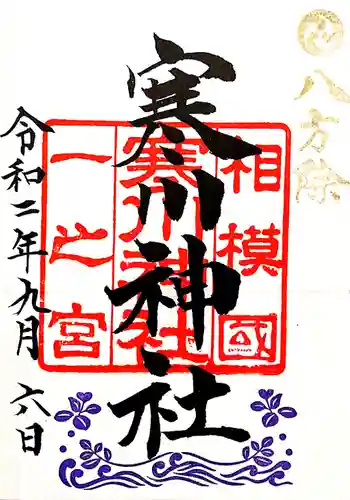 八方除
寒川神社
相模國
寒川神社
一之宮
令和二年九月六日